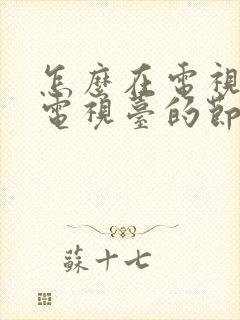 怎麼在電視
電視臺的節
蘇十七